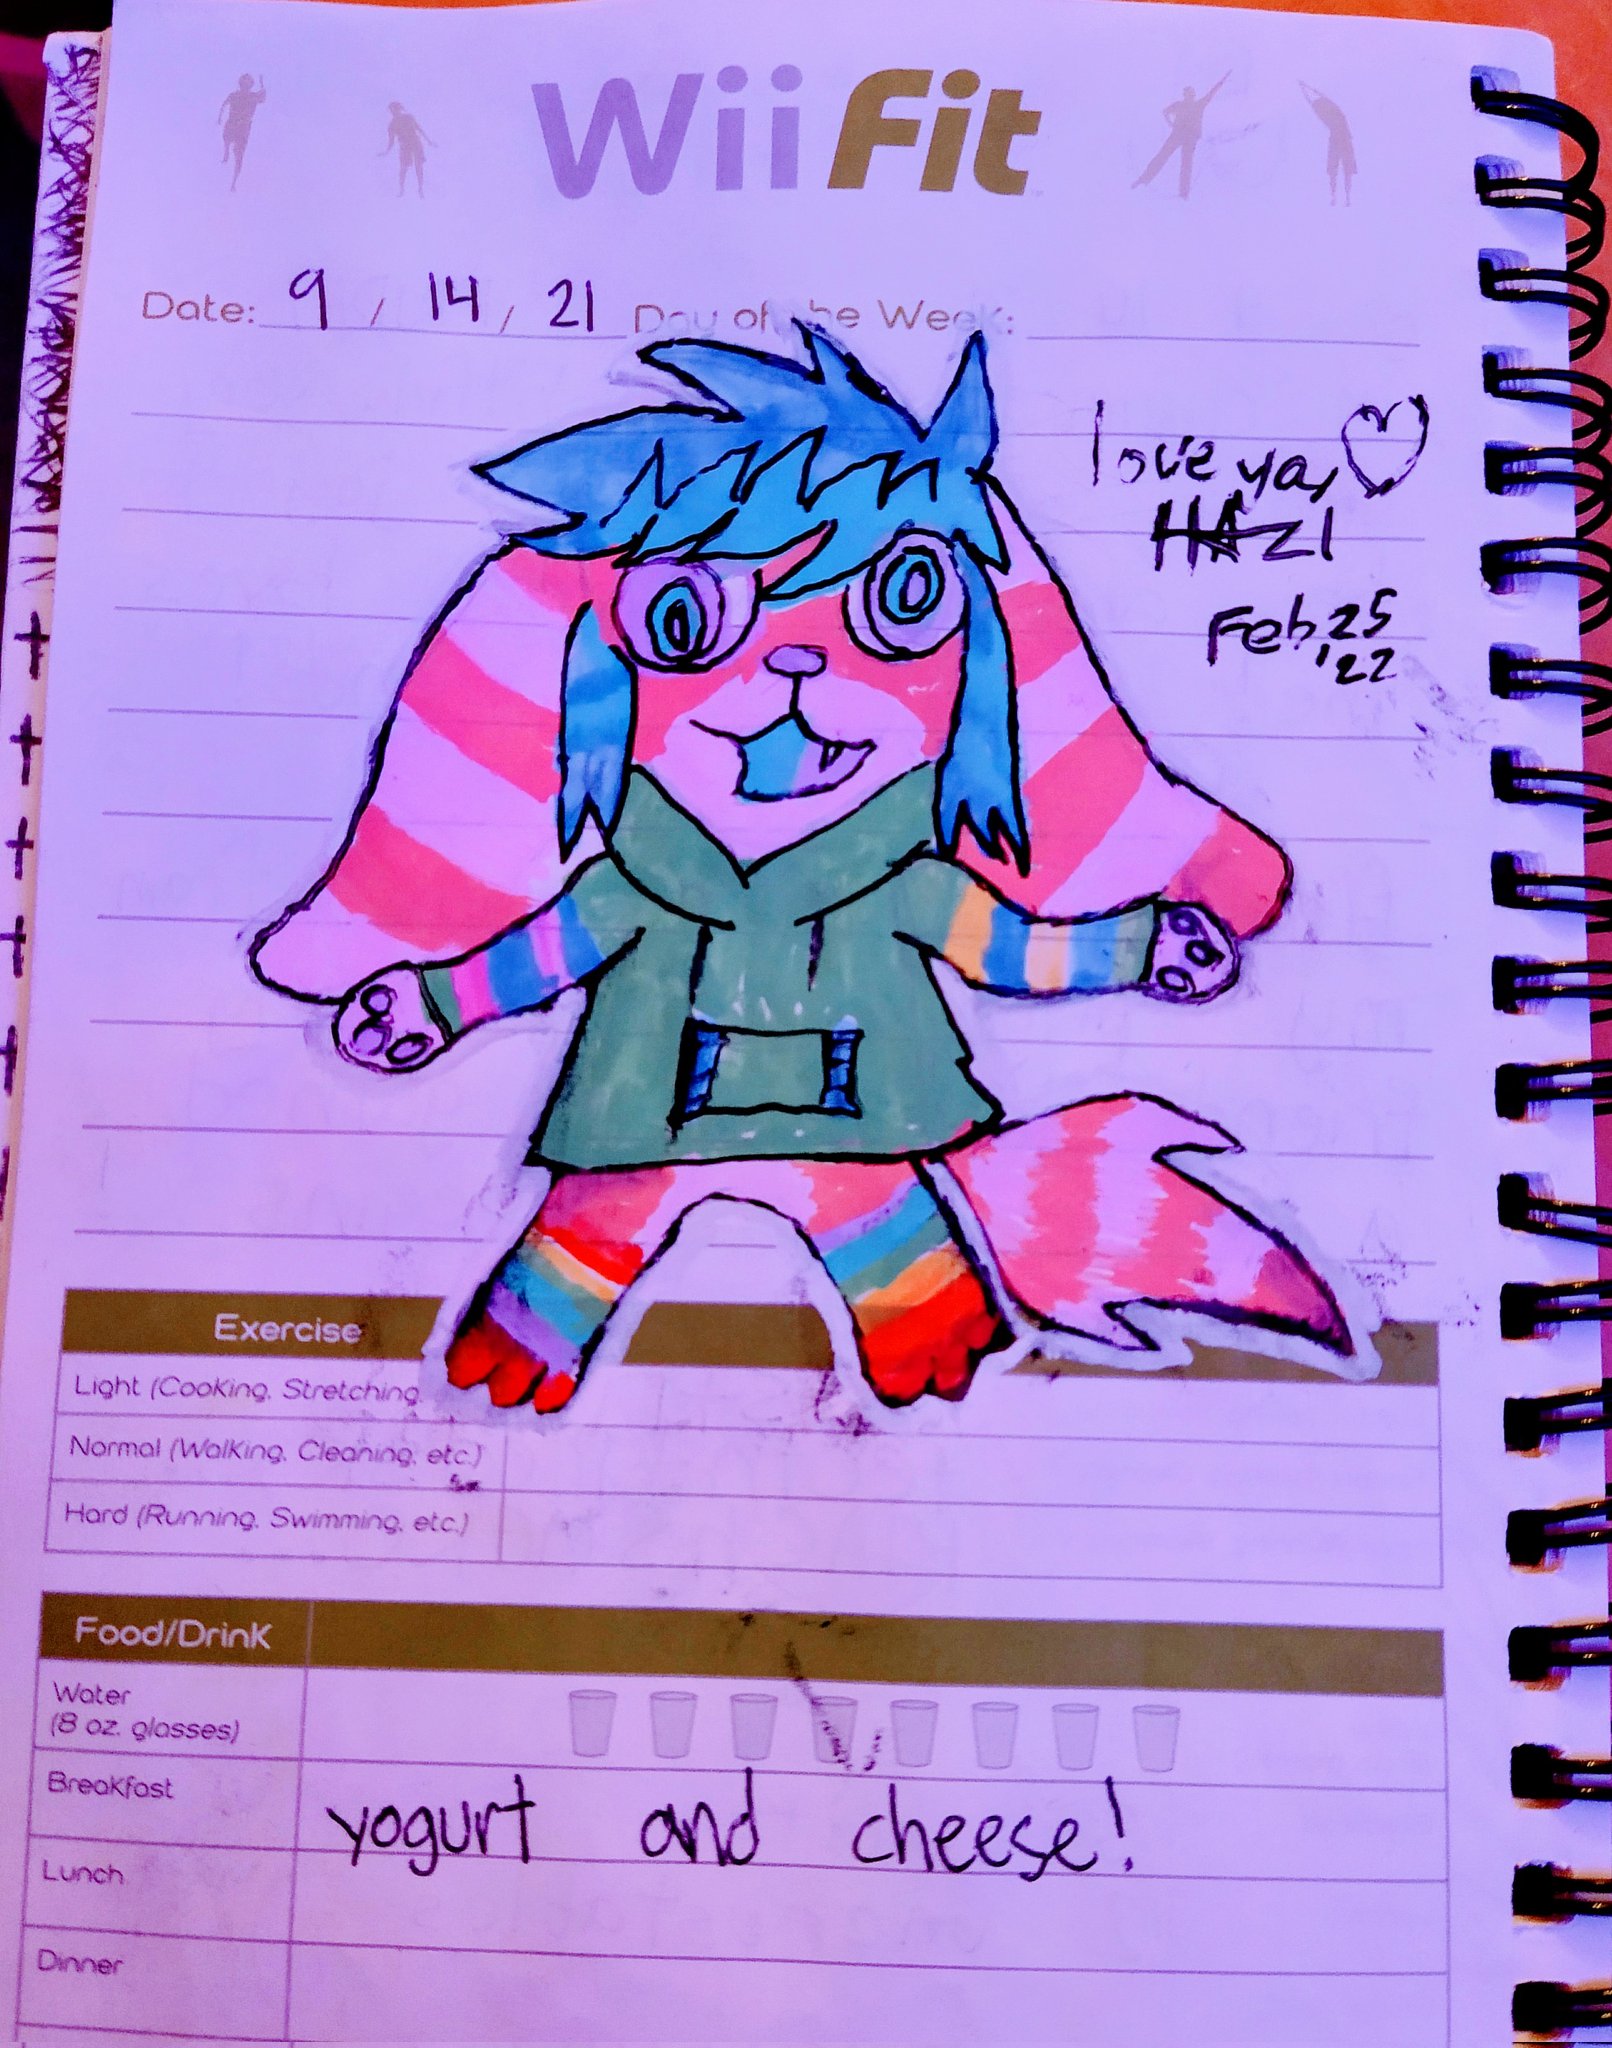 Wii Fit
Date: 9 / 14 / 21 Day of the Week:
love ya,
HAZI
Feb, 25
'22
Exercise
Light (Cooking, Stretching,
Normal (Walking, Cleaning, etc.)
Hard (Running, Swimming, etc.)
Food/Drink
Water
(8 oz. glasses)
Breakfast yogurt and cheese!
Lunch
Dinner